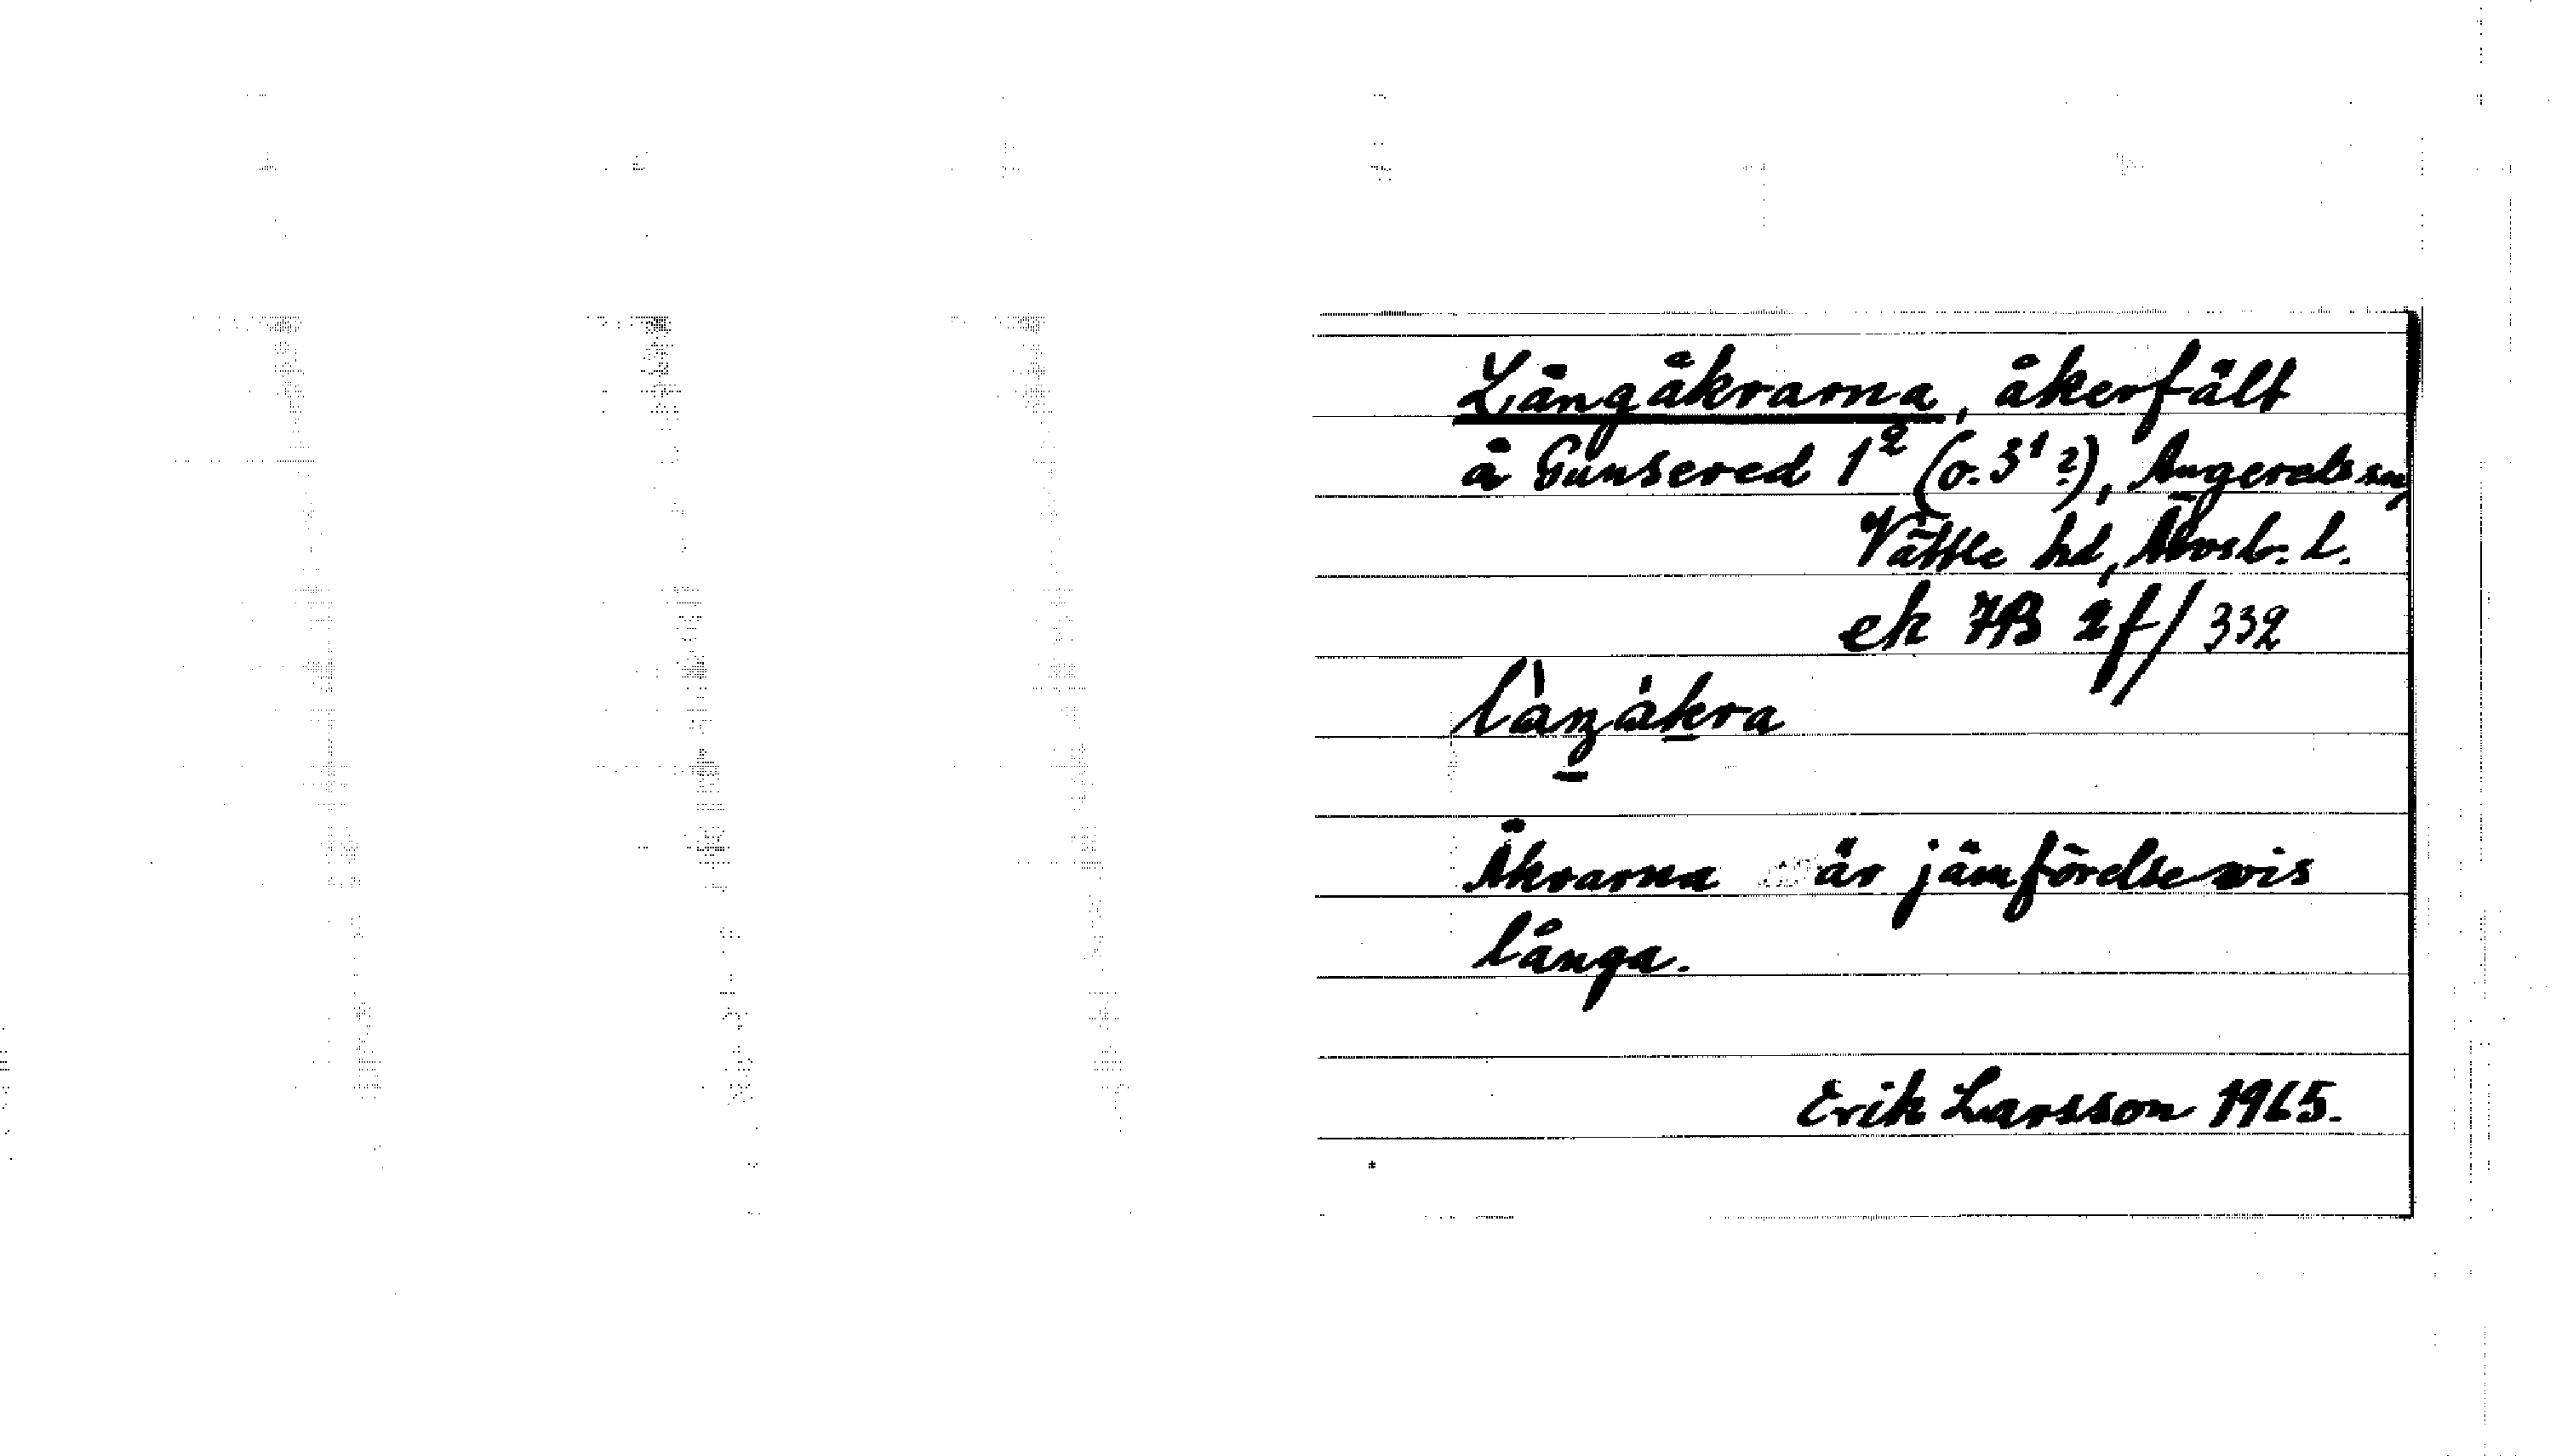 Långåkrarna, åkerfält
å Gunsered 1² (o. 3¹ ?), Angereds sn,
Vättle hd, Älvsb. l.
ek 7B 2f/332
Åkrarna är jämförelsevis
långa.
Erik Larsson 1965.